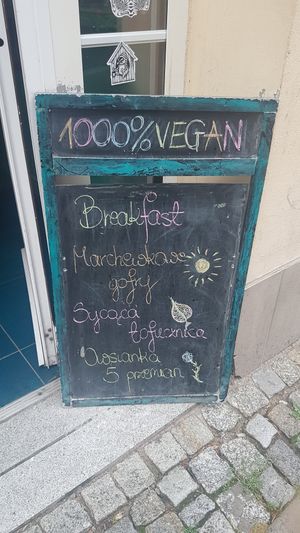 1000% VEGAN
Breakfast
Marchewkowe
gofry
Sycąca
tofucznica
Owsianka
5 przemian